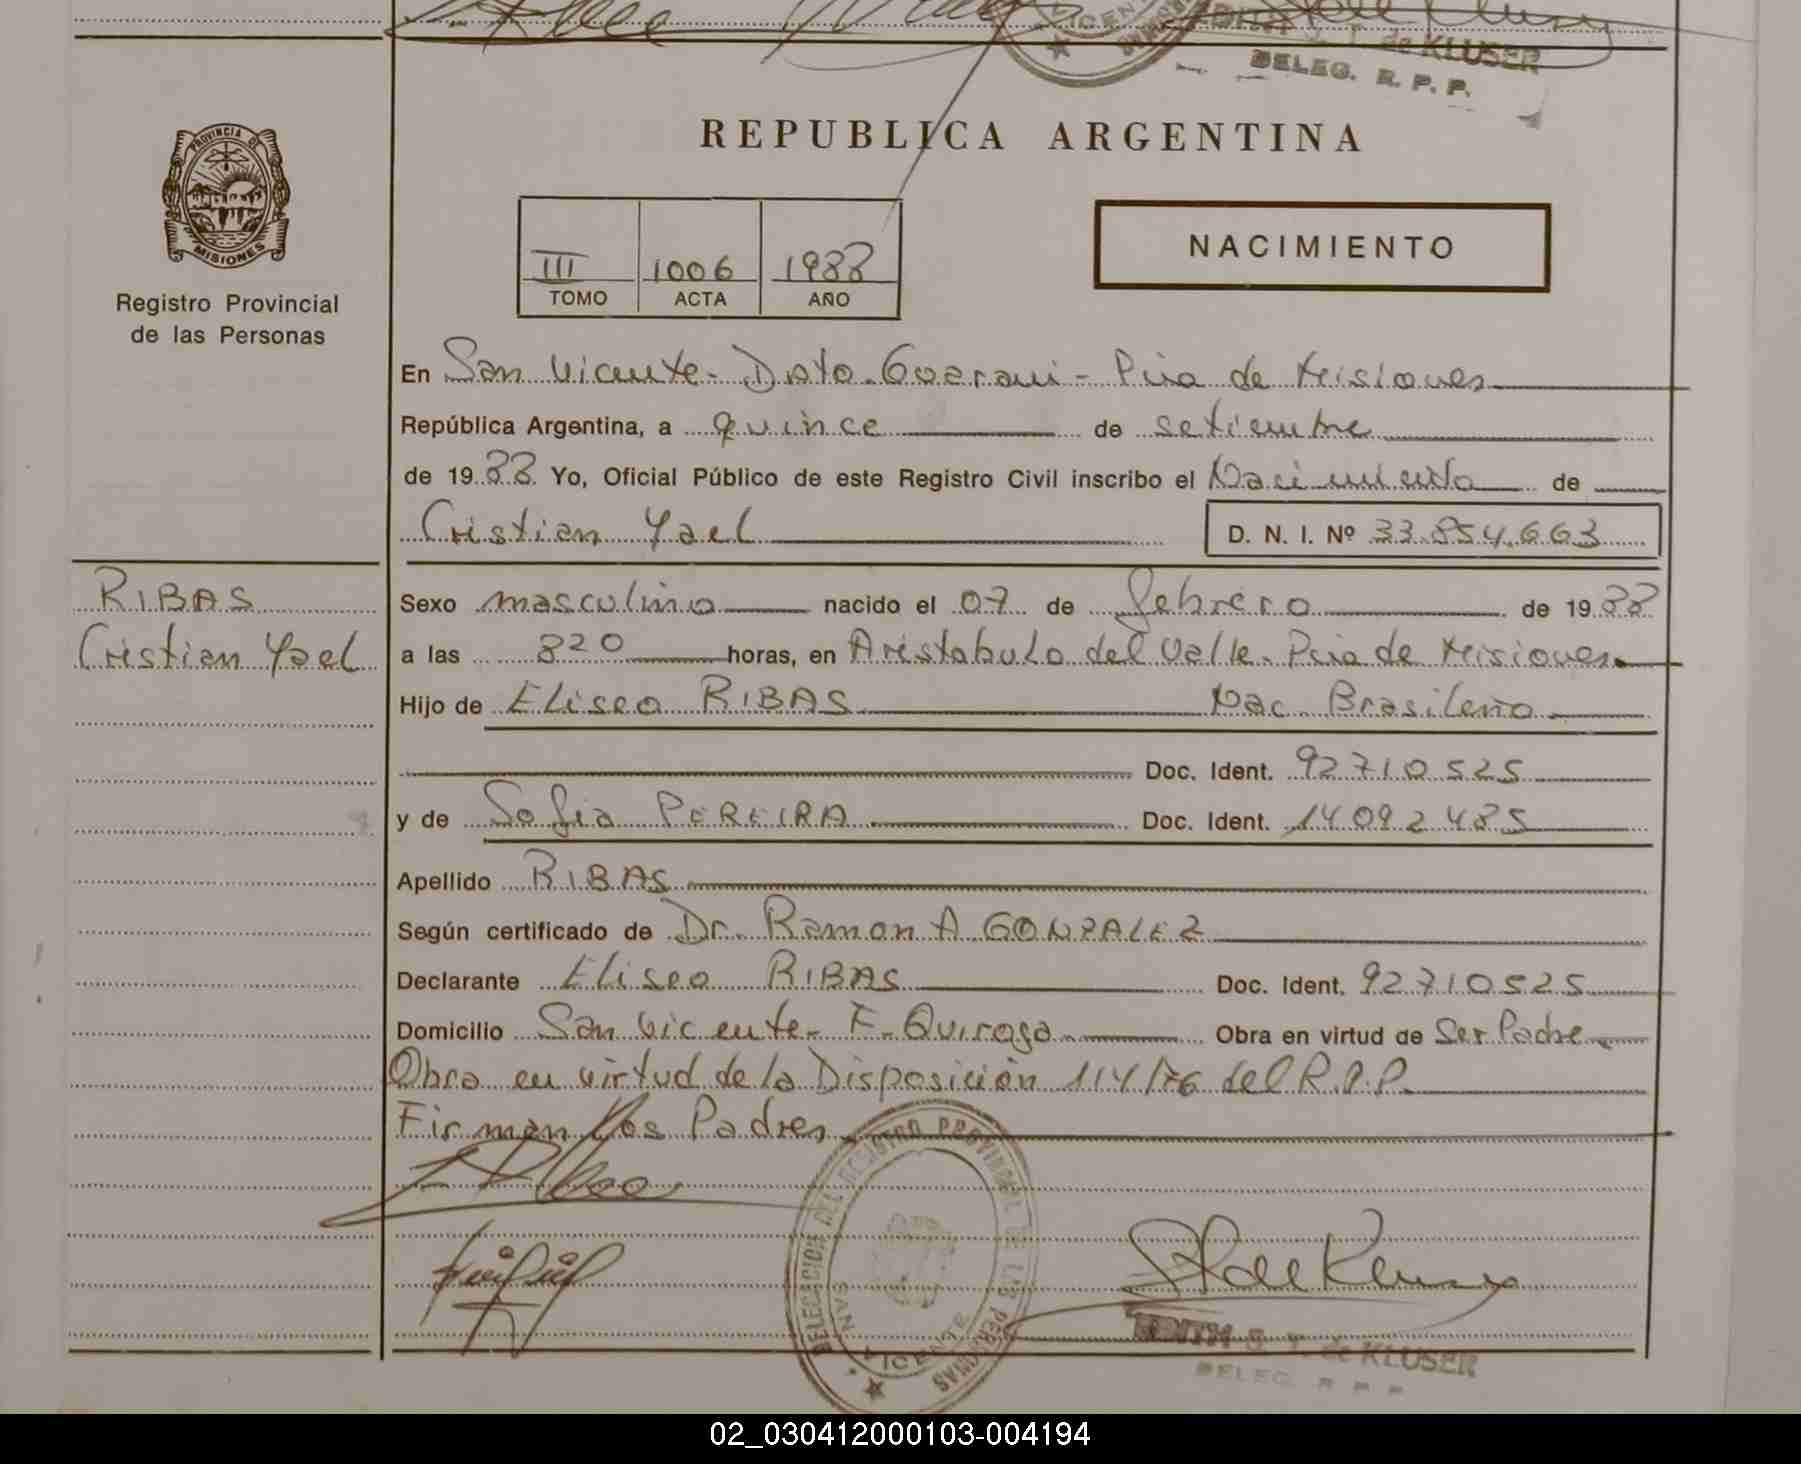 T. de KLUSER
DELEG. R. P. P.
PROVINCIA DE
MISIONES
Registro Provincial
de las Personas
REPUBLICA ARGENTINA
III 1006 1988
TOMO ACTA AÑO
NACIMIENTO
En San Vicente - Dpto. Guarani - Pcia de Misiones
República Argentina, a quince de setiembre
de 1988 Yo, Oficial Público de este Registro Civil inscribo el Nacimiento de
Cristian Yael D. N. I. Nº 33.854.663
RIBAS
Cristian Yael
Sexo masculino nacido el 07 de febrero de 1988
a las 820 horas, en Aristobulo del Valle - Pcia de Misiones
Hijo de Eliseo RIBAS Nac. Brasileño
Doc. Ident. 92710525
y de Sofia PEREIRA Doc. Ident. 14092485
Apellido RIBAS
Según certificado de Dr. Ramon A GONZALEZ
Declarante Eliseo RIBAS Doc. Ident. 92710525
Domicilio San Vicente - F. Quiroga Obra en virtud de Ser Padre
Obra en virtud de la Disposición 114/76 del R.P.P.
Firman los Padres
DELEGACION DEL REGISTRO PROVINCIAL DE LAS PERSONAS
SAN VICENTE
EDITH S. T. de KLUSER
DELEG. R P P
02_030412000103-004194